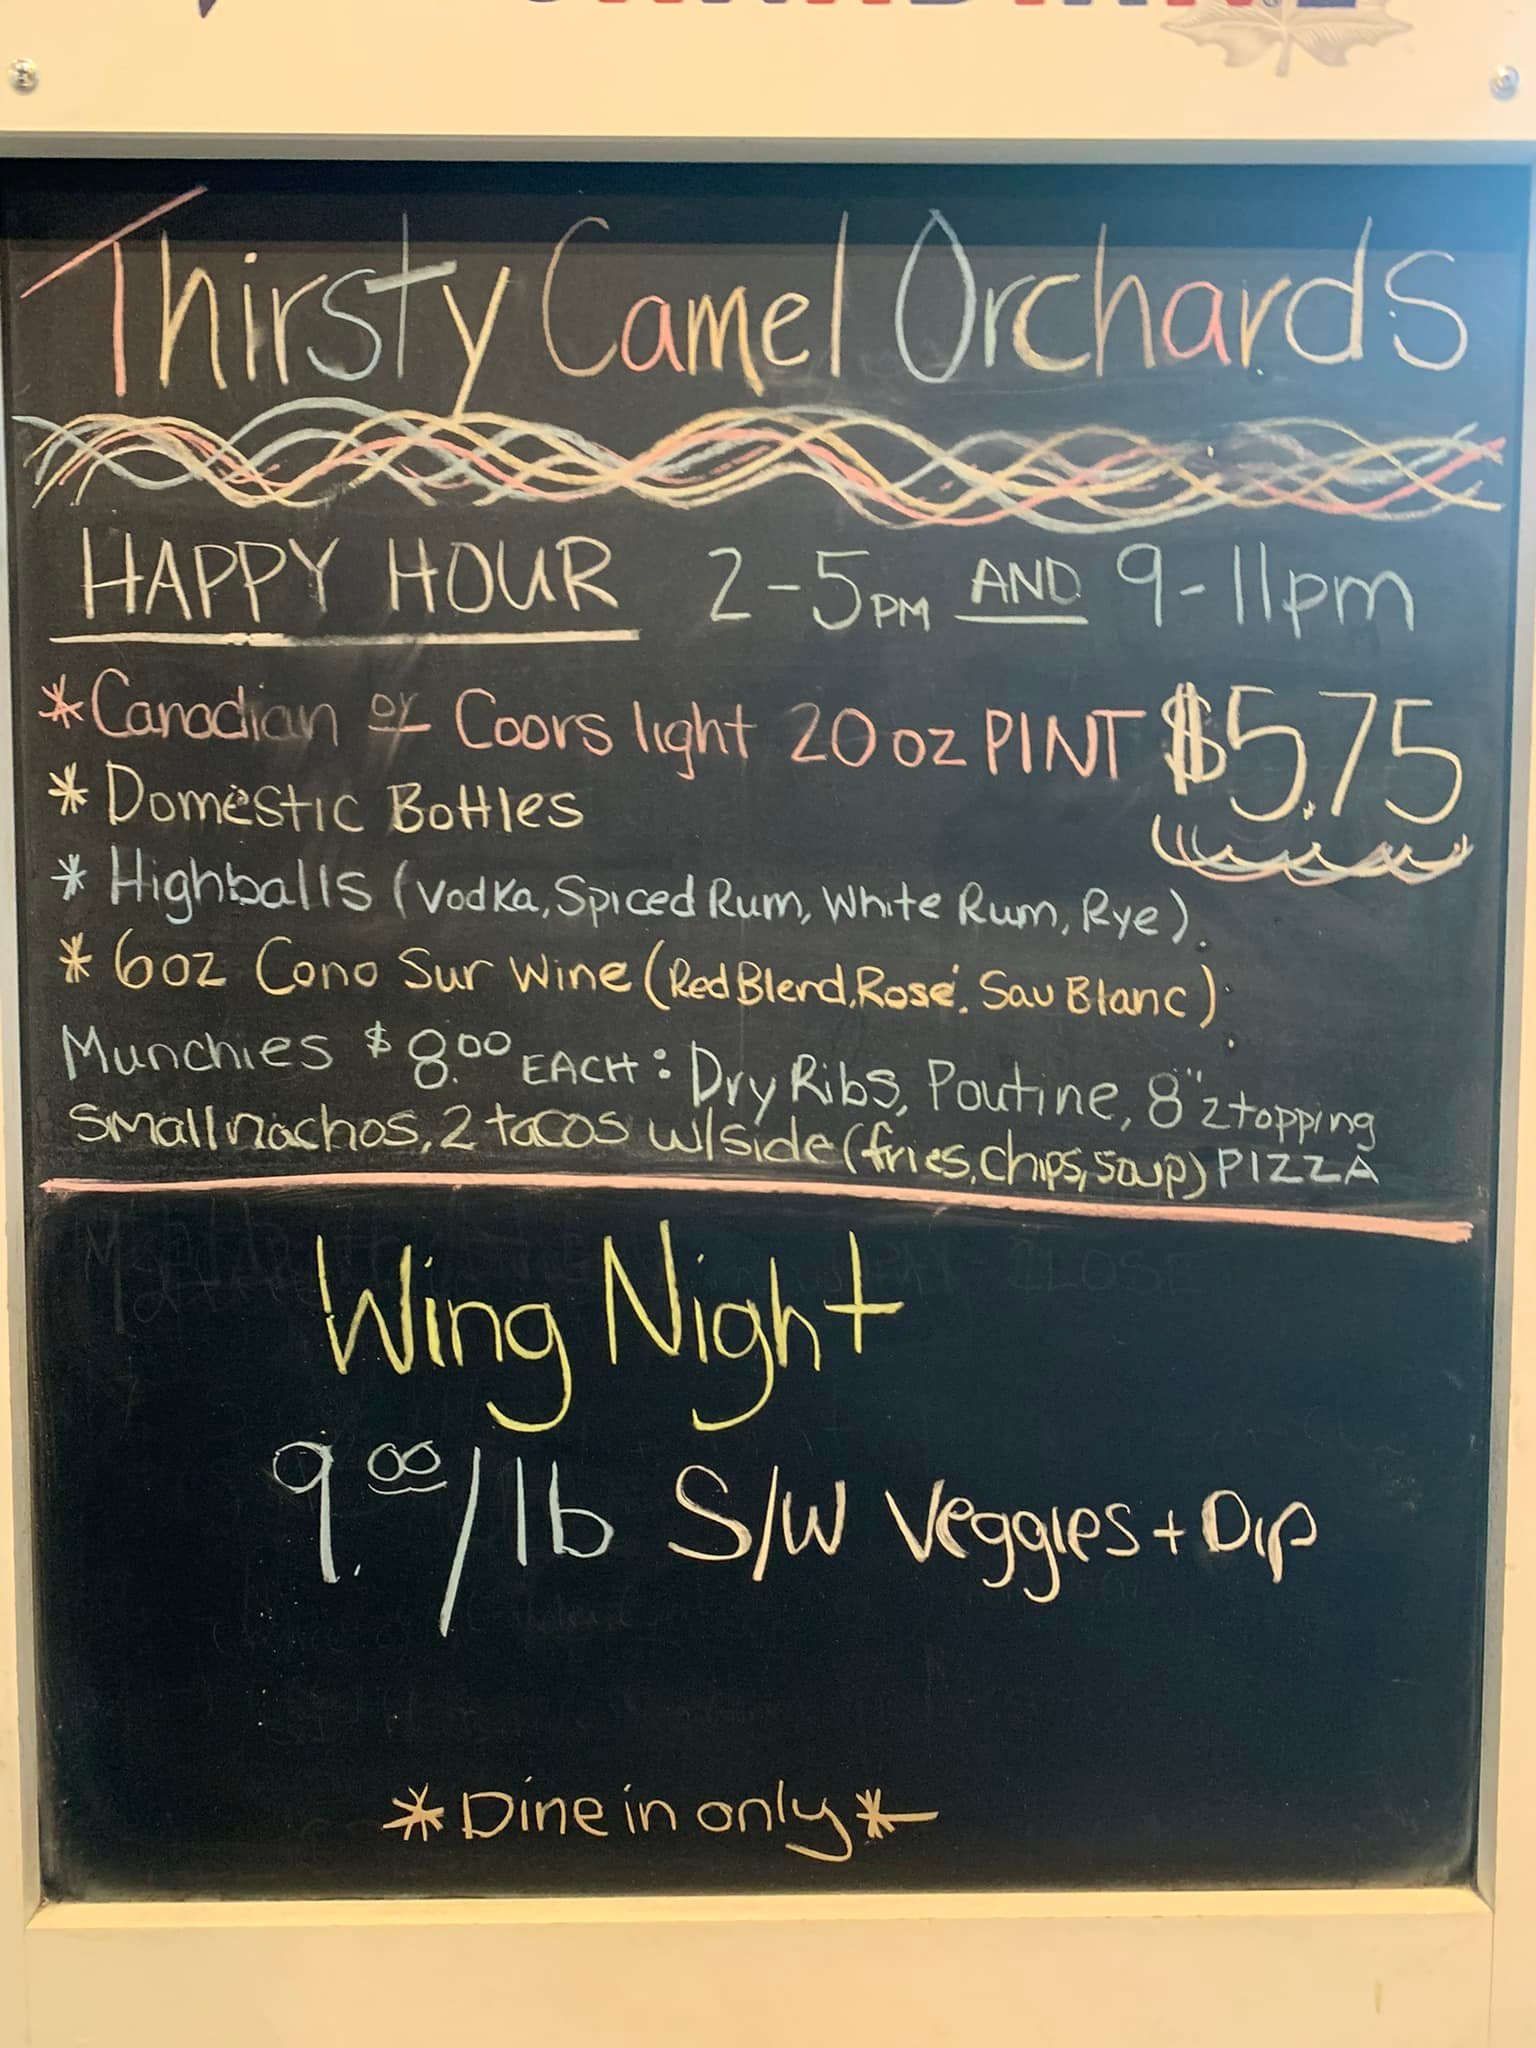 Thirsty Camel Orchards
HAPPY HOUR 2-5PM AND 9-11pm
*Canadian or Coors light 20 oz PINT $5.75
* Domestic Bottles
* Highballs (Vodka, Spiced Rum, White Rum, Rye)
* 6oz Cono Sur Wine (Red Blend, Rosé, Sau Blanc)
Munchies $8.00 EACH: Dry Ribs, Poutine, 8" 2 topping
Small nachos, 2 tacos w/side (fries, chips, soup) PIZZA
Wing Night
9.00/lb S/W Veggies + Dip
*Dine in only*